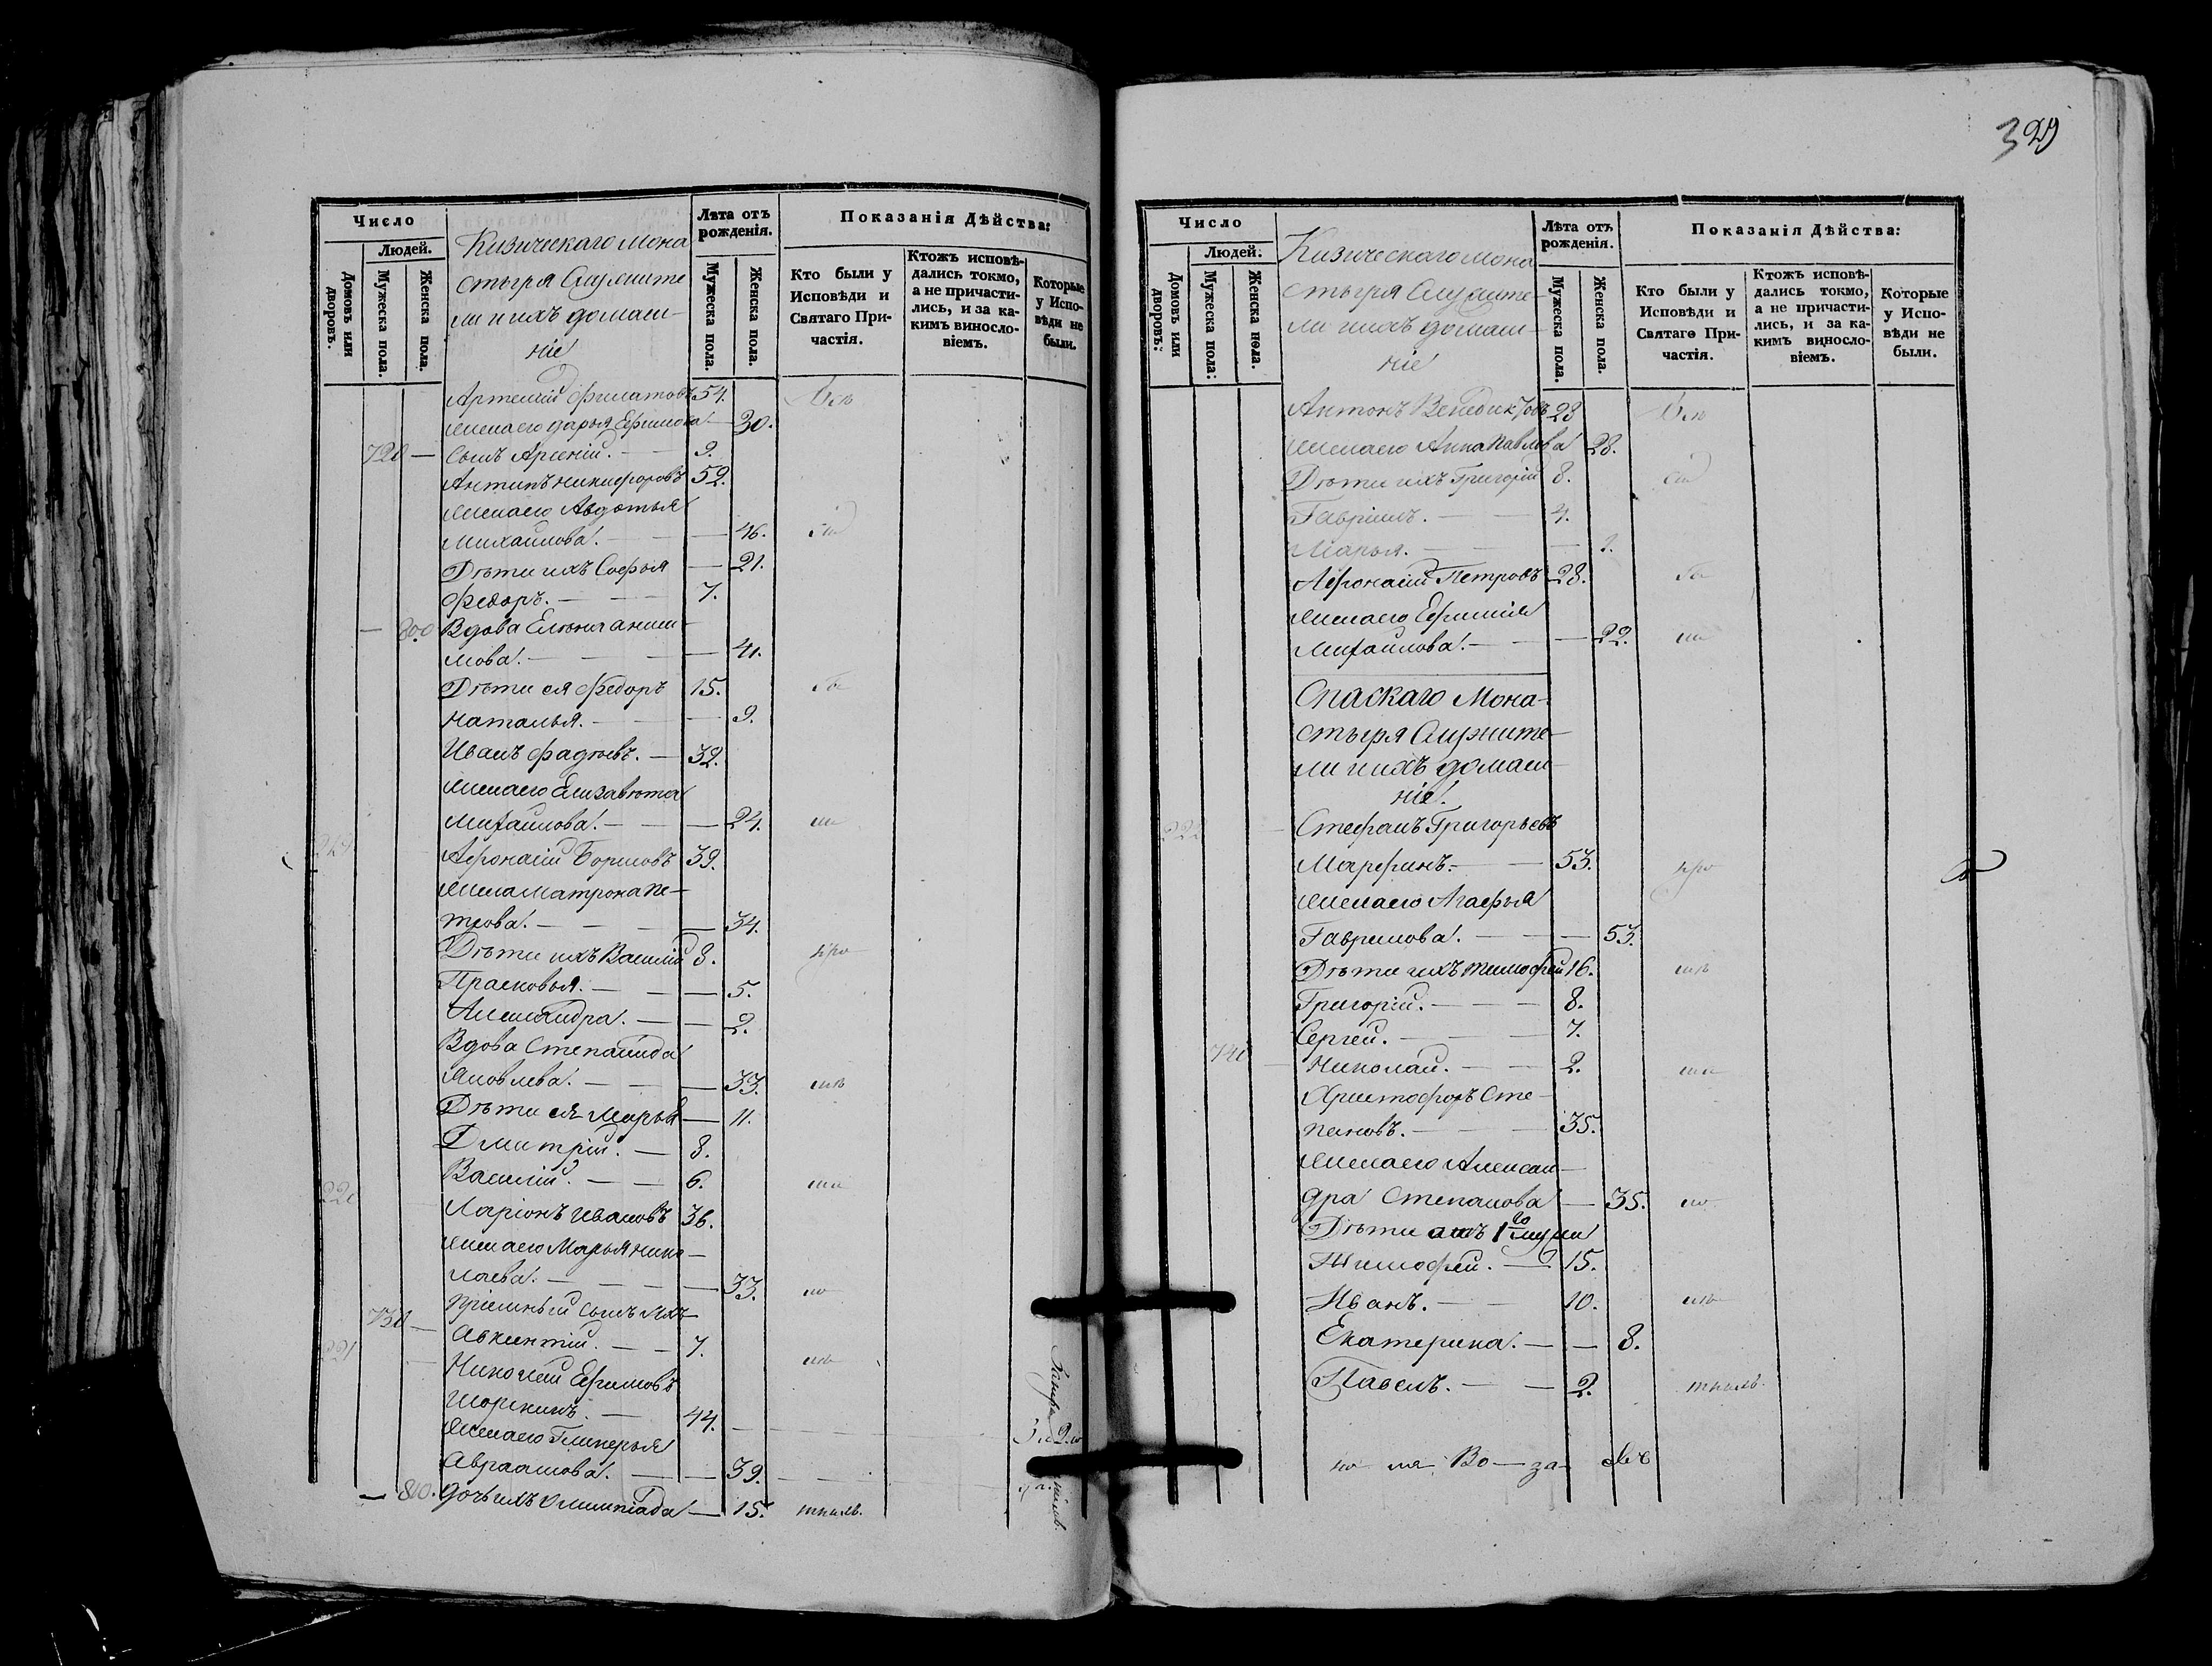 Число
Людей.
Домовъ или дворовъ.
Мужеска пола.
Женска пола.
Кизическаго Мона
стыря Служите
ли и ихъ домаш-
ніе
Лѣта отъ рожденія.
Мужеска пола.
Женска пола.
Показанія Дѣйства:
Кто были у Исповѣди и Святаго При-частія.
Ктожъ исповѣ-дались токмо, а не причасти-лись, и за ка-кимъ виносло-віемъ.
Которые у Испо-вѣди не были.
Артемій Филатовъ 54.
Жена его Дарья Ефимова — 30.
720 — Сынъ Арсеній. — 9.
Антипъ Никифоровъ 52.
Жена его Авдотья
Михайлова. — 46.
Дѣти ихъ Софья — 21.
Федоръ. — 7.
— 800 Вдова Елена Аниси-
мова. — 41.
Дѣти ея Федоръ 15.
Наталья. — 9.
Иванъ Фадѣевъ. — 32.
Жена его Елизавета
Михайлова. — 24.
Афонасій Борисовъ 39.
Жена Матрона Пе-
трова. — 34.
Дѣти ихъ Василій 8.
Прасковья. — 5.
Александра. — 2.
Вдова Степанида
Яковлева. — 33.
Дѣти ея Марья — 11.
Дмитрій. — 8.
Василій. — 6.
220
Ларіонъ Ивановъ 36.
Жена его Марья Нико-
лаева. — 33.
730 — Пріемный сынъ ихъ
Авкентій. — 7.
221
Николай Ефимовъ
Шоркинъ. — 44.
Жена его Гликерья
Авраамова. — 39.
— 810. Дочь ихъ Олимпіада — 15.
329
Число
Людей.
Домовъ или дворовъ:
Мужеска пола:
Женска пола.
Кизическаго Мона
стыря Служите-
ли и ихъ домаш-
ніе
Лѣта отъ рожденія.
Мужеска пола.
Женска пола.
Показанія Дѣйства:
Кто были у Исповѣди и Святаго При-частія.
Ктожъ исповѣ-дались токмо, а не причасти-лись, и за ка-кимъ виносло-віемъ.
Которые у Испо-вѣди не были.
Антонъ Венедиктовъ 28
Жена его Анна Павлова 28.
Дѣти ихъ Григорій 8.
Гавріилъ. — 4.
Марья. —
Афонасій Петровъ 28.
Жена его Ефимія
Михайлова. — 22.
Спаскаго Мона-
стыря Служите-
ли и ихъ домаш-
ніе.
222
Стефанъ Григорьевъ
Марфинъ. — 53.
Жена его Агафья
Гаврилова. — 53.
Дѣти ихъ Тимофей 16.
Григорій. — 8.
Сергей. — 7.
740 Николай. — 2.
Христофоръ Сте-
пановъ. — 35.
Жена его Алексан-
дра Степанова — 35.
Дѣти отъ 1го мужа
Тимофей. — 15.
Иванъ. — 10.
Екатерина. — 8.
Павелъ. — 2.